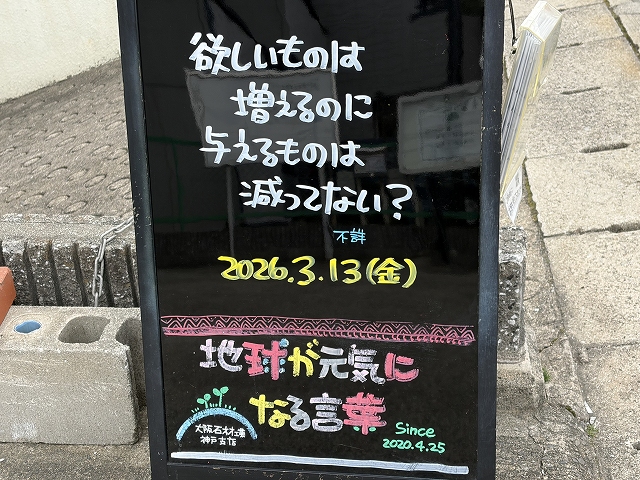 欲しいものは
増えるのに
与えるものは
減ってない?
不詳
2026.3.13(金)
地球が元気に
なる言葉
大阪石材工業
神戸支店
Since
2020.4.25